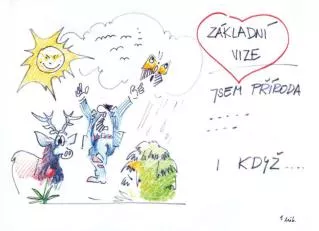 ZÁKLADNÍ
VIZE
JSEM PŘÍRODA
- - - - -
- - - -
I KDYŽ ....